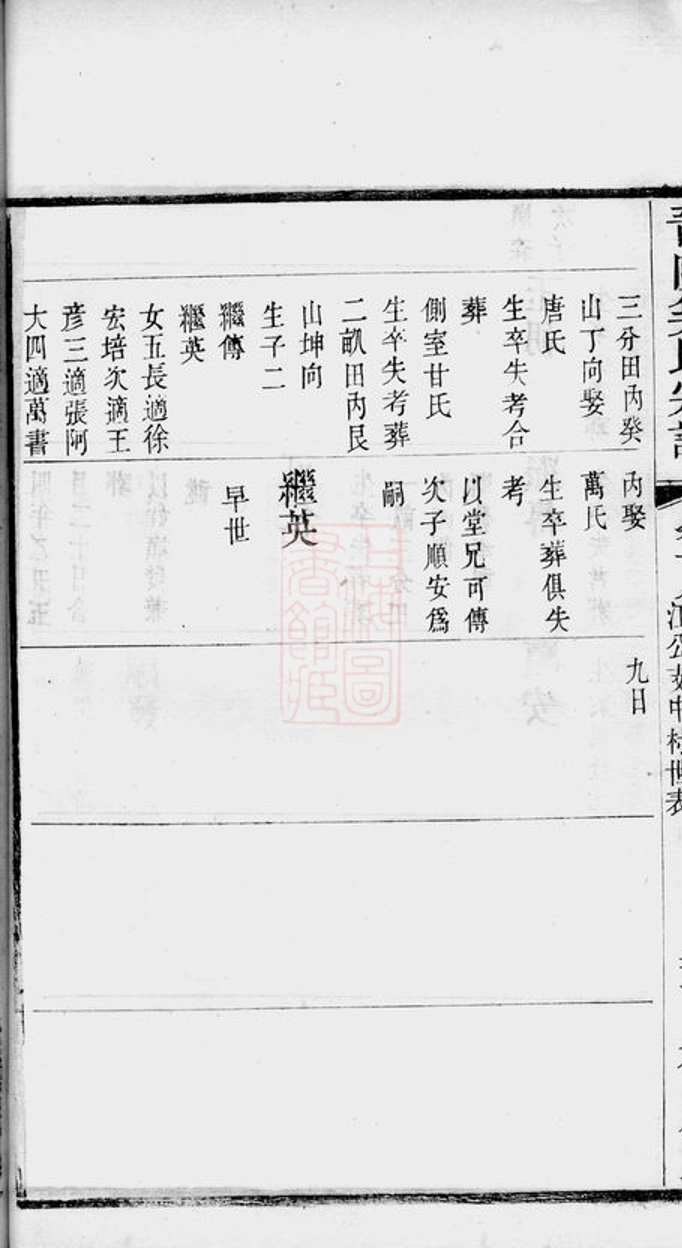 三分田內癸
山丁向娶
唐氏
生卒失考合
葬
側室甘氏
生卒失考葬
二畝田內艮
山坤向
生子二
繼傳
繼英
女五長適徐
宏培次適王
彥三適張阿
大四適萬書
內娶
萬氏
生卒葬俱失
考
以堂兄可傳
次子順安爲
嗣
繼英
早世
九日